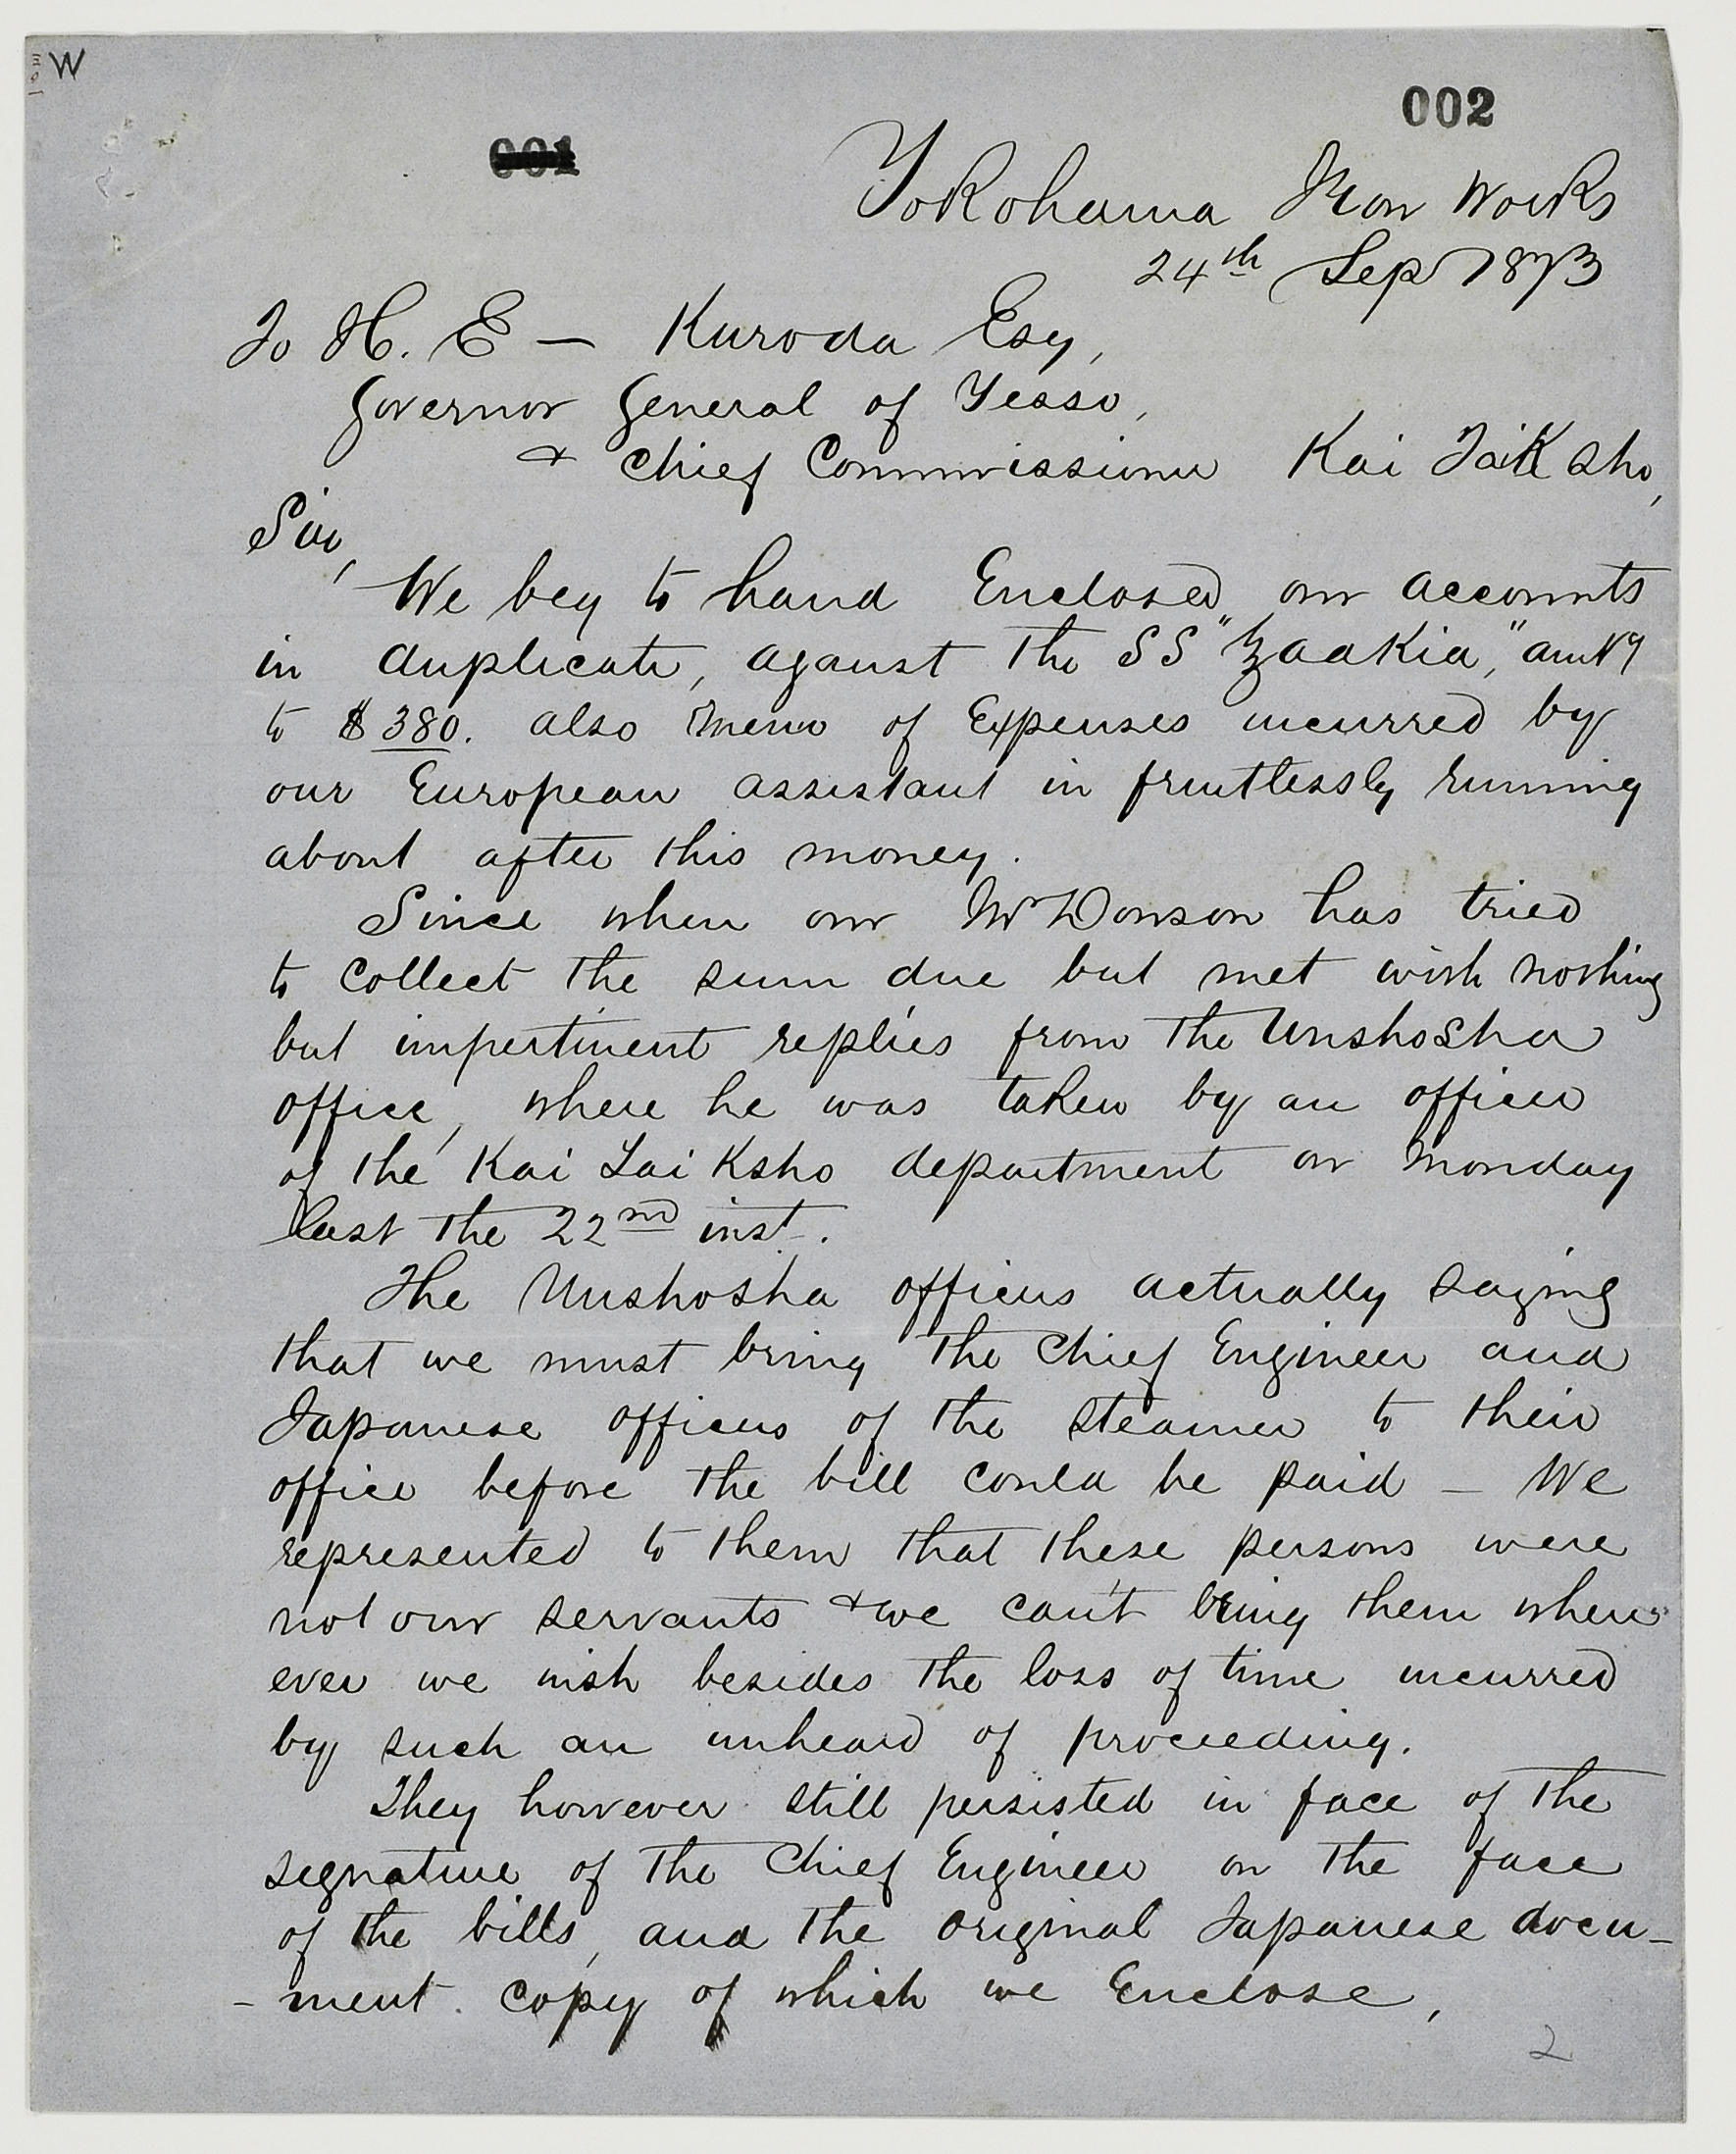 W
002
001
Yokohama Iron Works
24th Sep 1873
To H. E — Kuroda Esq,
Governor General of Yesso,
& Chief Commissioner Kai Taik sho,
Sir,
We beg to hand Enclosed our accounts
in duplicate, against the SS "Kaakia," amtg
to $380. also memo of Expenses incurred by
our European assistant in fruitlessly running
about after this money.
Since when our Mr Dowson has tried
to collect the sum due but met with nothing
but impertinent replies from the Unshosha
office, where he was taken by an officer
of the Kai Tai Ksho department on Monday
last the 22nd inst.
The Unshosha officers actually saying
that we must bring the Chief Engineer and
Japanese officers of the steamer to their
office before the bill could be paid — We
represented to them that these persons were
not our servants & we can't bring them when
ever we wish besides the loss of time incurred
by such an unheard of proceeding.
They however still persisted in face of the
signature of the Chief Engineer on the face
of the bills, and the original Japanese docu-
-ment copy of which we Enclose,
2